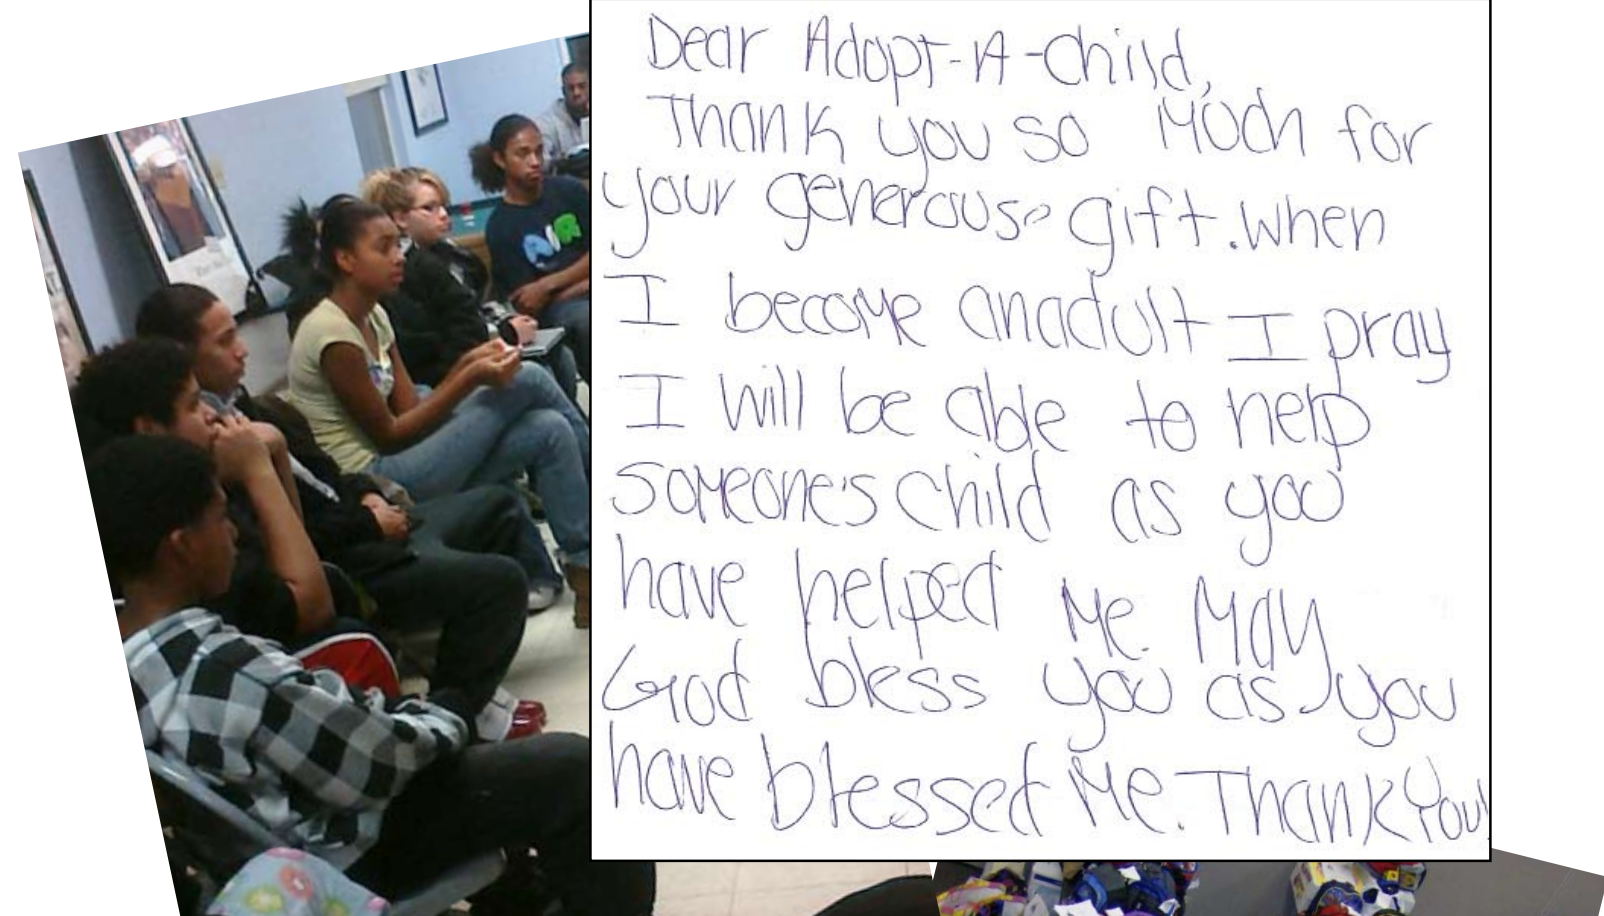 Dear Adopt-A-Child,
Thank you so Much for
your generous gift. when
I become an adult I pray
I will be able to help
someone's child as you
have helped Me. May
God bless you as you
have blessed Me. Thank You!
AIR